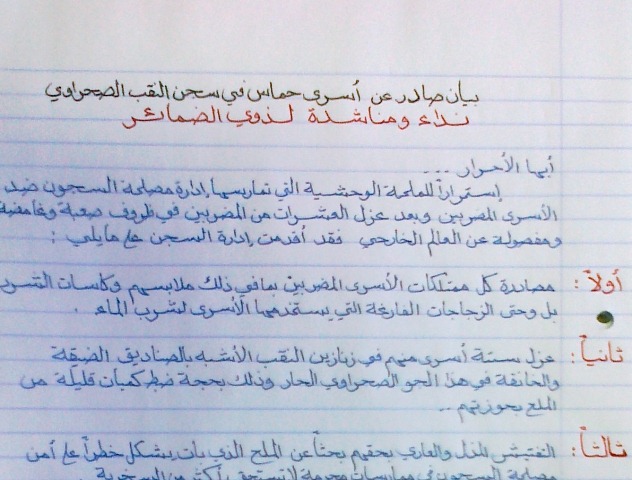 بيان صادر عن أسرى حماس في سجن النقب الصحراوي
نداء ومناشدة لذوي الضمائر
أيها الأحرار ...
إستمراراً للحملة الوحشية التي تمارسها إدارة مصلحة السجون ضد
الأسرى المضربين وبعد عزل العشرات من المضربين في ظروف صعبة وغامضة
ومفصولة عن العالم الخارجي فقد أقدمت إدارة السجن على مايلي :
أولاً : مصادرة كل ممتلكات الأسرى المضربين بما في ذلك ملابسهم وكاسات الشرب
بل وحتى الزجاجات الفارغة التي يستخدمها الأسرى لشرب الماء .
ثانياً : عزل ستة أسرى منهم في زنازين النقب الأشبه بالصناديق الضيقة
والخانقة في هذا الجو الصحراوي الحار وذلك بحجة ضبط كميات قليلة من
الملح بحوزتهم ..
ثالثاً : التفتيش المذل والعاري بحقهم بحثاً عن الملح الذي بات يشكل خطراً على أمن
مصلحة السجون في ممارسات مجرمة لا تستحق أكثر من السخرية .